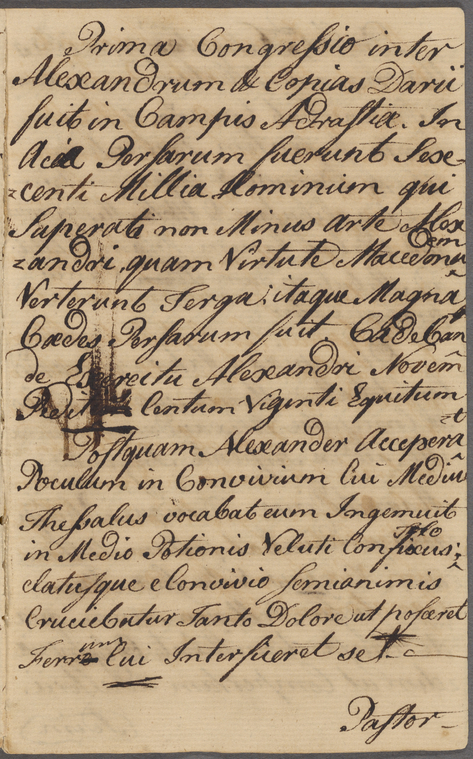 Prima Congressio inter
Alexandrum & Copias Darii
fuit in Campis Adrastiæ. In
Acie Persarum fuerunt Sex=
=centi Millia Hominum qui
Superati non Minus Arte Alex
=andri, quam Virtute Macedonū
Verterunt Terga; itaque Magna
Cædes Persarum fuit
de Exercitu Alexandri Novem
Centum Viginti Equitum
Postquam Alexander Accepera^t
Poculum in Convivium Cui Mediū
Thessalus vocabat eum Ingemuit
in Medio Potionis Veluti Confixus;
elatusque e Convivio Semianimis
Cruciebatur Tanto Dolore ut posceret
Ferrum Cui Interficeret se
Pastor